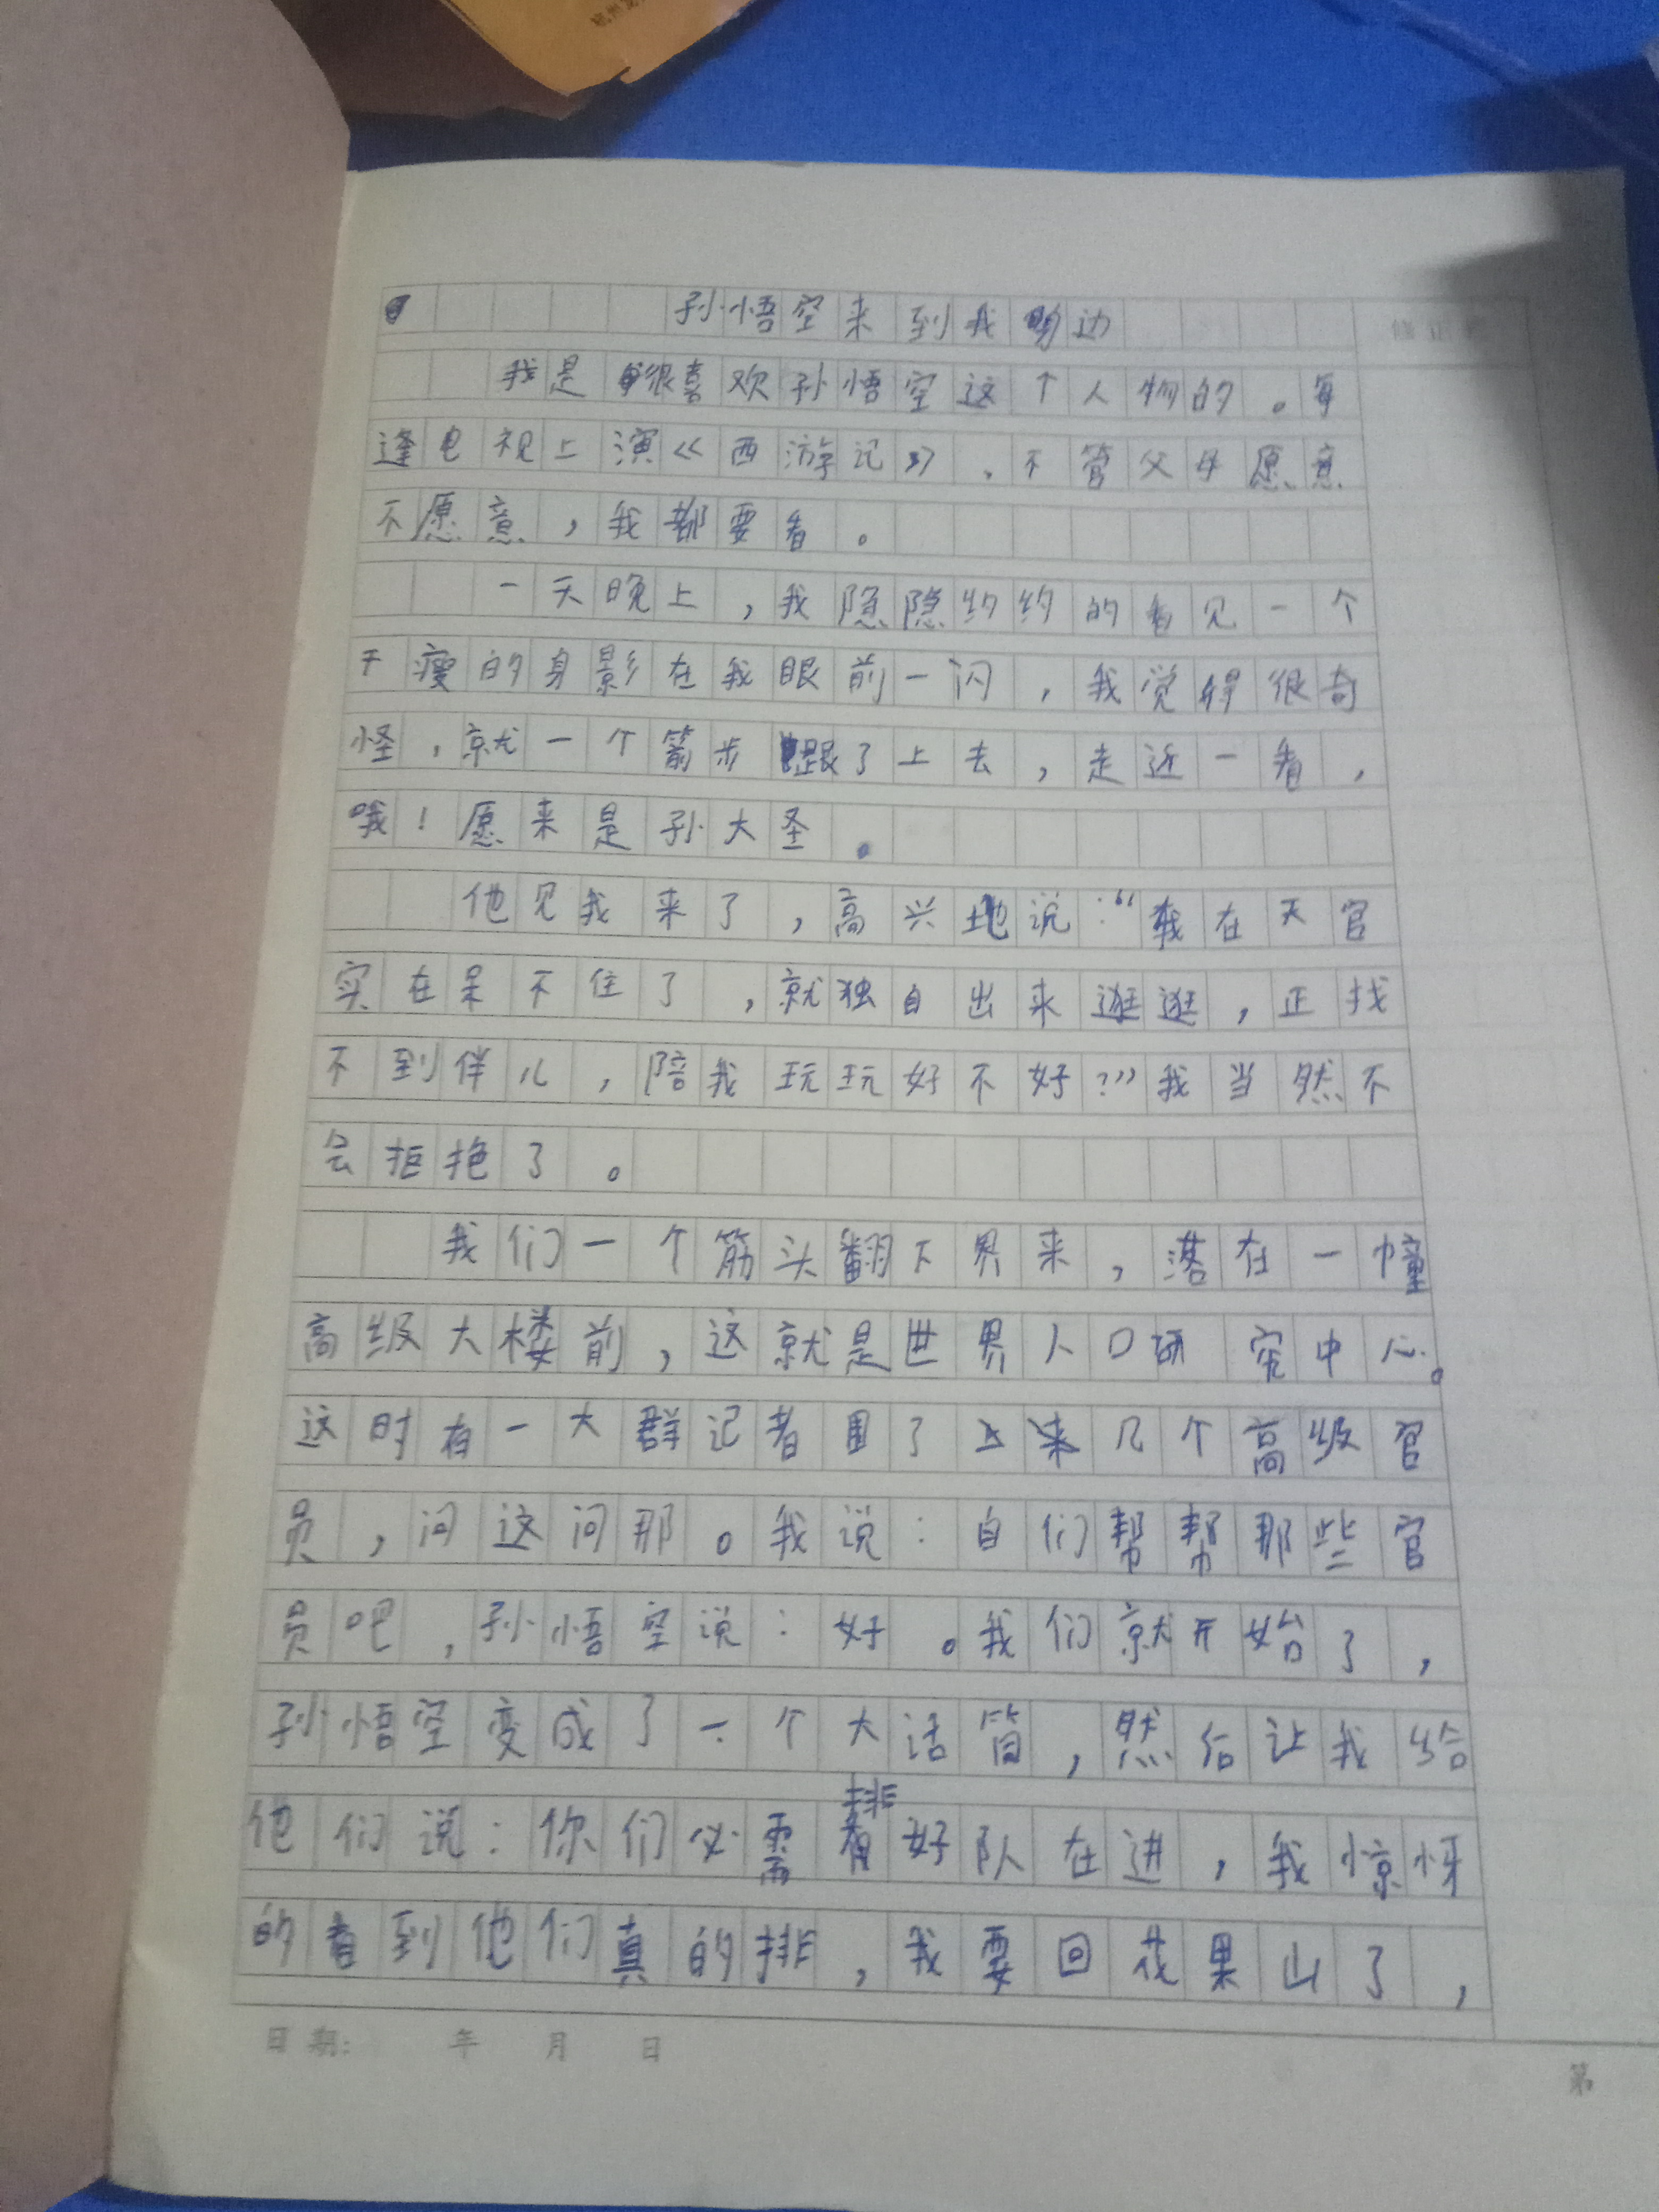 孙悟空来到我的边
我是很喜欢孙悟空这个人物的。每
逢电视上演《西游记》，不管父母愿意
不愿意，我都要看。
一天晚上，我隐隐约约的看见一个
干瘦的身影在我眼前一闪，我觉得很奇
怪，就一个箭步跟了上去，走近一看，
哦！愿来是孙大圣。
他见我来了，高兴地说：“我在天官
实在呆不住了，就独自出来逛逛，正找
不到伴儿，陪我玩玩好不好？”我当然不
会拒绝了。
我们一个筋头翻下界来，落在一幢
高级大楼前，这就是世界人口研究中心。
这时有一大群记者围了上来几个高级官
员，问这问那。我说：自们帮帮那些官
员吧，孙悟空说：好。我们就开始了，
孙悟空变成了一个大话筒，然后让我给
他们说：你们必需排好队在进，我惊讶
的看到他们真的排，我要回花果山了，
日期： 年 月 日
第